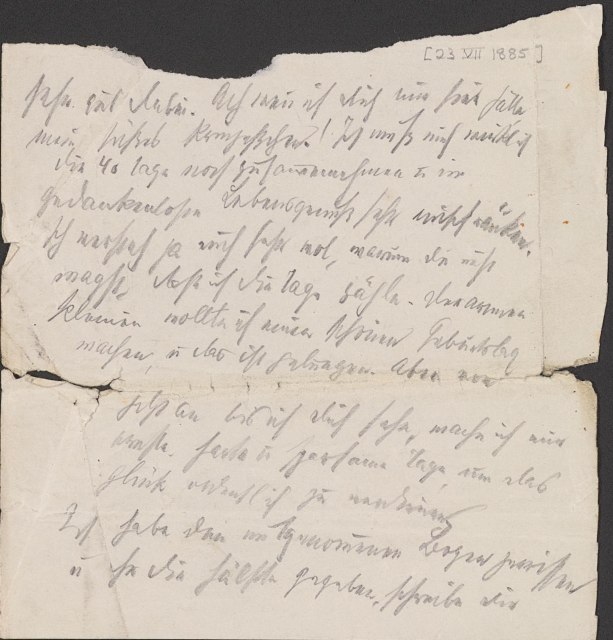 [23 VII 1885]
sehr gut dabei. Ach wenn ich dich nur hier hätte
mein süßes! Ich muß mich wirklich
die 40 Tage noch zusammennehmen u im
gedankenlosen Lebensgenuß sehr einschränken.
Ich versteh ja auch sehr wol, warum du nicht
magst, daß ich die Tage zähle. Der armen
Kleinen wollte ich einen schönen Geburtstag
machen, u das ist gelungen. Aber von
jetzt an bis ich dich sehe, mache ich mir
ernste, harte u sparsame Tage, um das
Glück ordentlich zu verdienen
Ich habe den Bogen zerrissen
u die Hälfte gegeben, schreibe dir